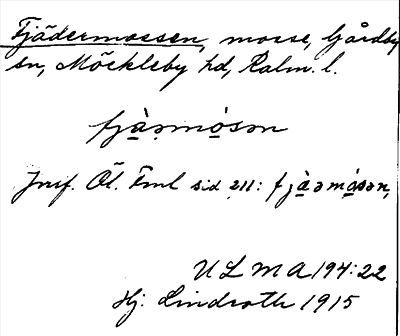 Fjädermossen, mosse, Gårdby
sn, Möckleby hd, Kalm. l.
fjàəmósən
Jmf. Öl. Fml sid 211: fjàəmósən,
ULMA 194:22
Hj. Lindroth 1915